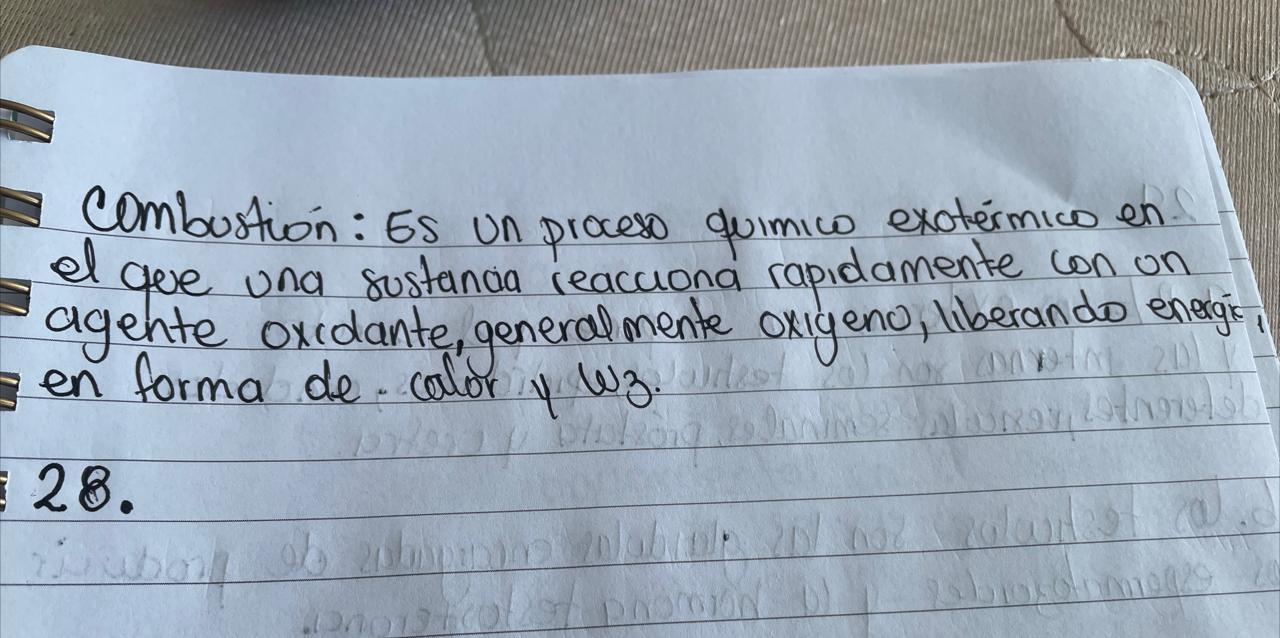 Combustión: Es un proceso químico exotérmico en
el que una sustancia reacciona rapidamente con un
agente oxidante, generalmente oxigeno, liberando energía,
en forma de calor y luz.
28.